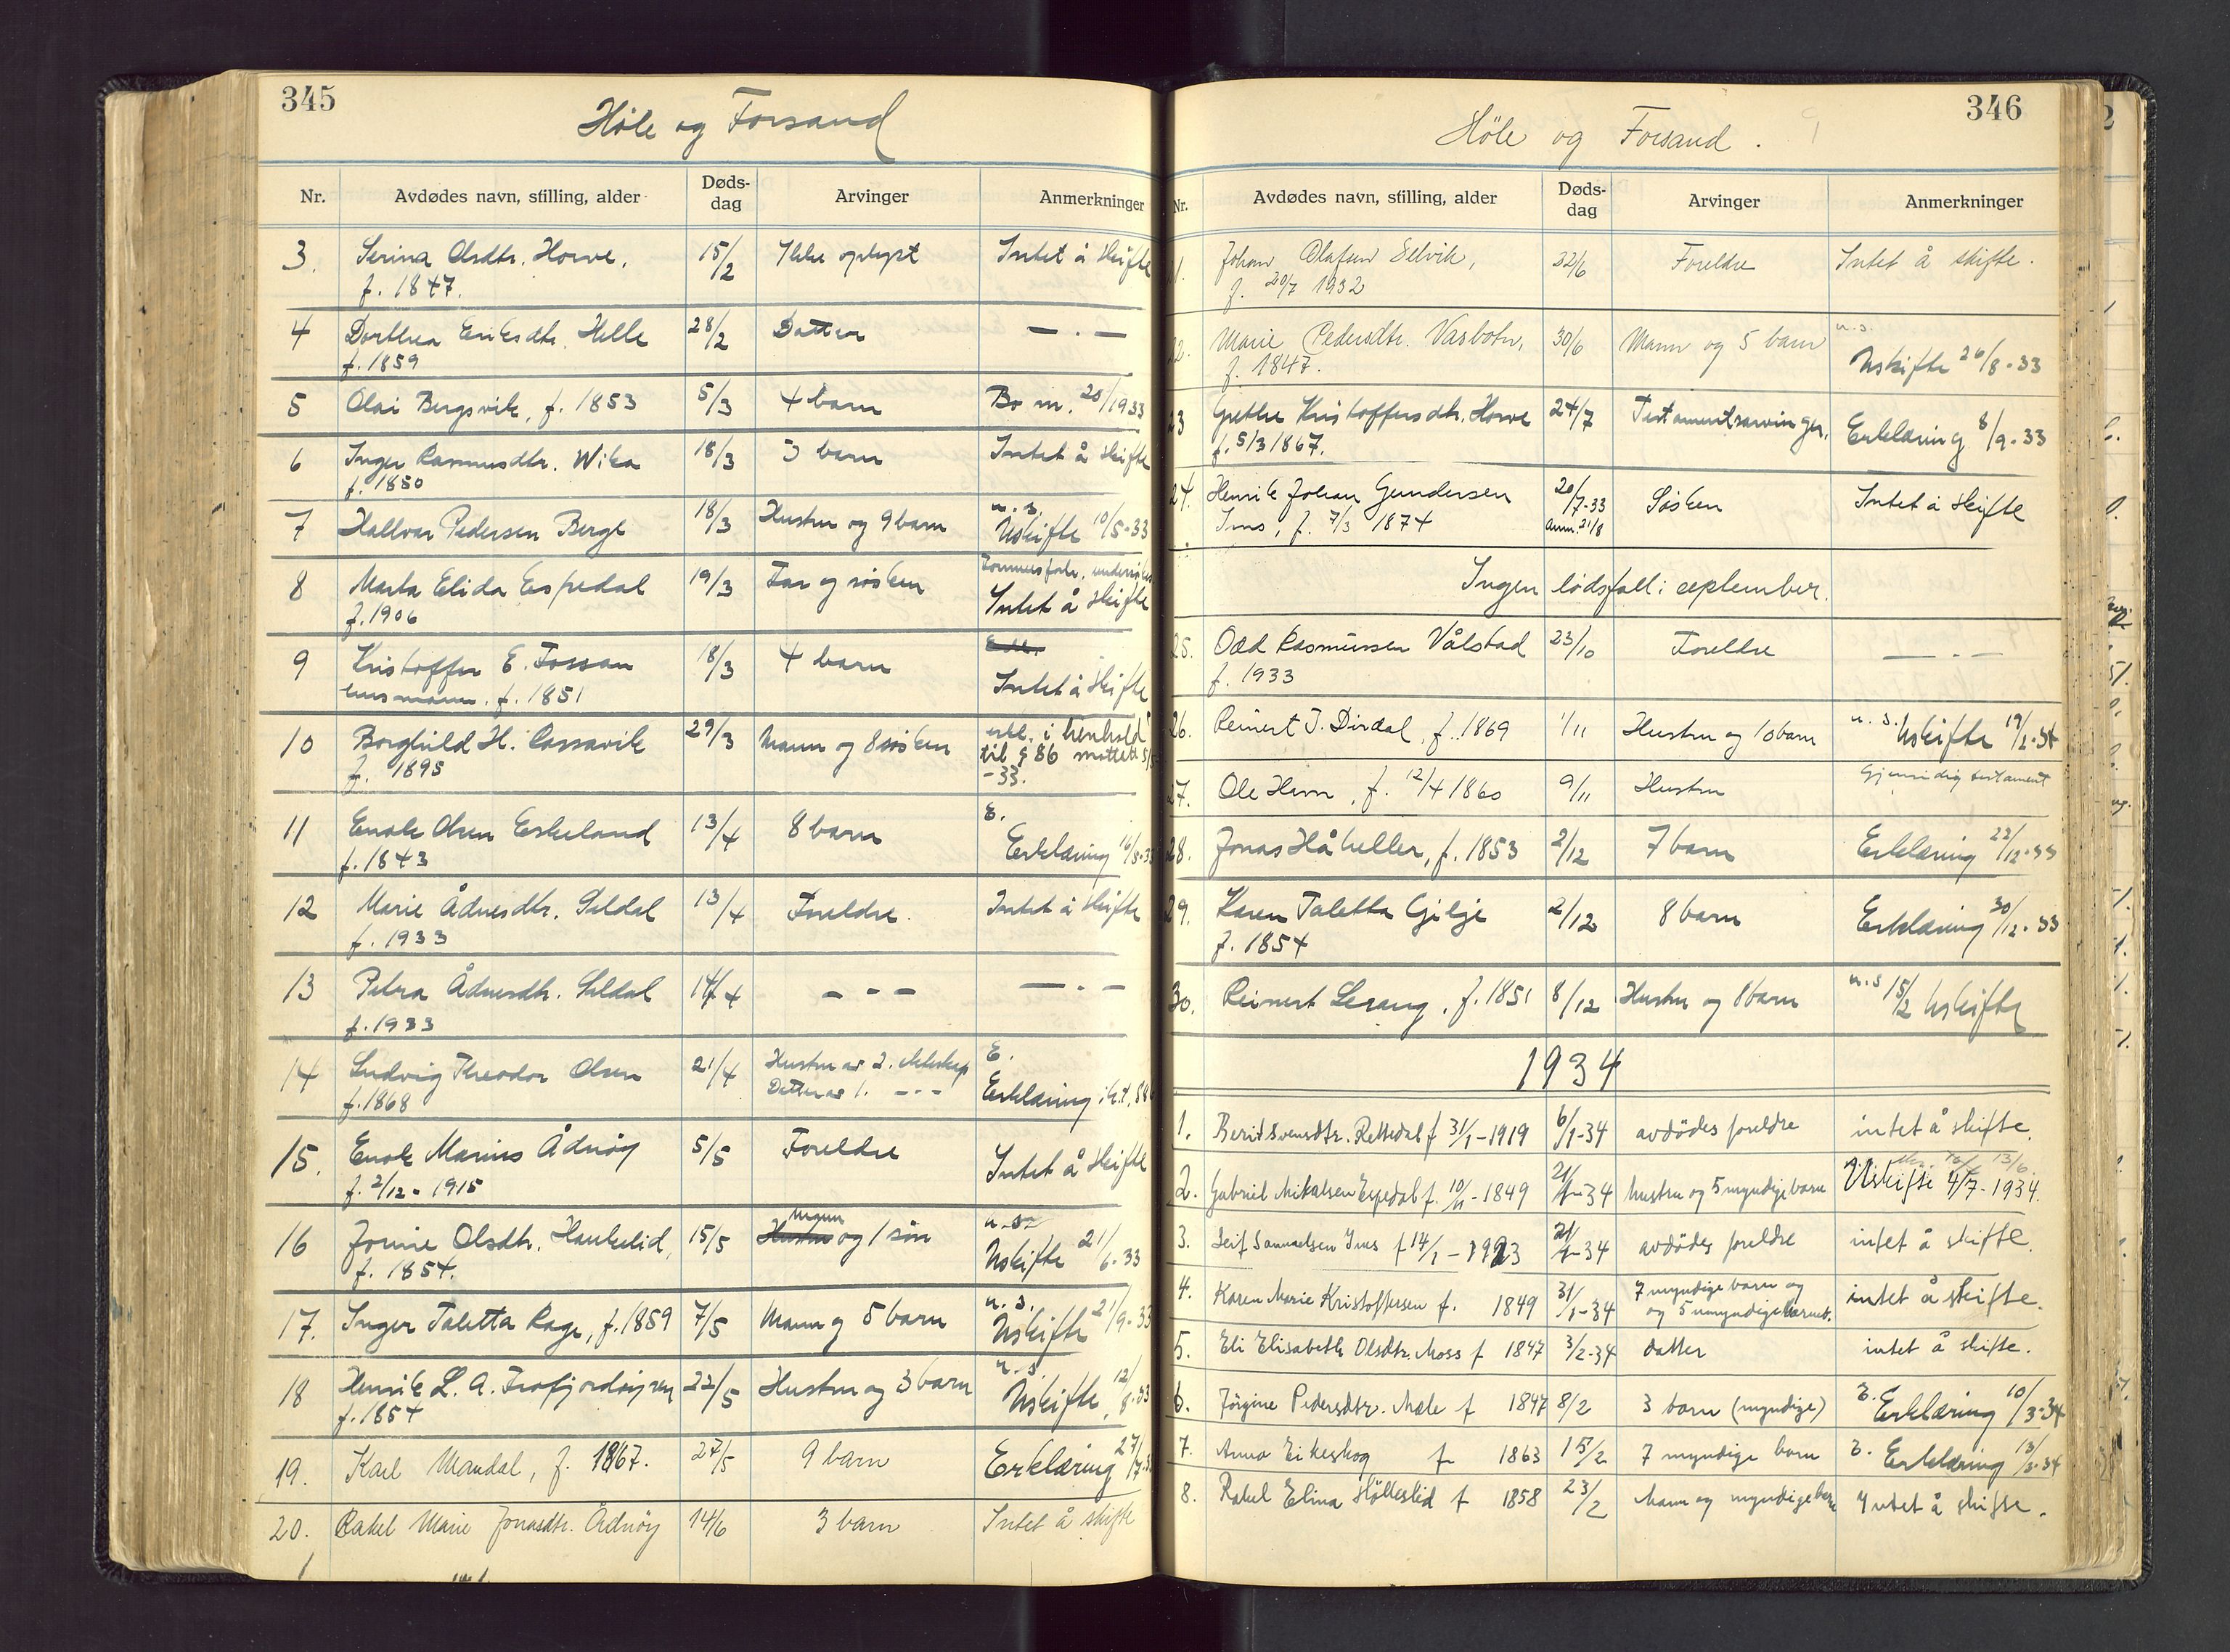 345
Høle og Forsand
Nr. Avdødes navn, stilling, alder Døds-dag Arvinger Anmerkninger
3. Serina Olsdtr. Howe, 15/2 Ikke oplyst Intet å skifte
f. 1847.
4 Dorthea Eriksdtr. Helle 28/2 Datter — . —
f. 1859
5 Olai Bergsvik, f. 1853 5/3 4 barn Bo m. 20/1933
6 Inger Rasmusdtr. Wika 18/3 3 barn Intet å skifte
f. 1850
7 Hallvar Pedersen Berge 18/3 Hustru og 9 barn u. s.
Uskifte 10/5-33
8 Marta Elida Espedal 19/3 Far og søsken
f. 1906 Intet å skifte
9 Kristoffer E. Fossan 18/3 4 barn
f. 1851 Intet å skifte
10 Borghild H. Rossavik 29/3 Mann og 8 søsken erkl. i henhold
f. 1895 til § 86 mottatt 5/5
-33.
11 Enok Olsen Eskeland 13/4 8 barn E.
f. 1843 Erklæring 16/5-33
12 Marie Ådnesdtr. Seldal 13/4 Foreldre. Intet å skifte
f. 1933
13 Petra Ådnesdtr. Seldal 14/4 — - — — . —
f. 1933
14 Ludvig Theodor Olsen 21/4 Hustru av 2. ekteskap E.
f. 1868 Datter av 1. — - - Erklæring
15. Enok Marius Ådnøy 5/5 Foreldre
f. 2/12 - 1915 Intet å skifte
16 Jorine Olsdtr. Haukelid, 15/5 Mann og 1 søn u. s.
f. 1854. Uskifte 21/6-33
17. Inger Taletta Rage, f. 1859 7/5 Mann og 5 barn u. s.
Uskifte 21/9-33
18 Henrik L. A. Frafjordøyren 22/5 Hustru og 3 barn u. s.
f. 1854 Uskifte 12/8-33
19. Karl Mandal, f. 1867. 27/5 9 barn Erklæring 27/7-33
20. Rakel Marie Jonasdtr. Ådnøy 14/6 3 barn Intet å skifte
346
Høle og Forsand.
Nr. Avdødes navn, stilling, alder Døds-dag Arvinger Anmerkninger
21. Johan Olafsen Selvik, 22/6 Foreldre Intet å skifte.
f. 20/7 1932
22. Marie Pedersdtr. Vasbotn, 30/6 Mann og 5 barn u.s.
f. 1847. Uskifte 26/8-33
23 Grethe Kristoffersdtr. Howe 24/7 Testamentsarvinger. Erklæring 8/9-33
f. 5/3 1867.
24. Henrik Johan Gundersen 20/7-33 Søsken Intet å skifte
Ims, f. 7/3 1874 Anm. 21/8
Ingen dødsfall i september.
25. Odd Rasmussen Vålstad 23/10 Foreldre — . —
f. 1933
26. Reinert T. Dirdal, f. 1869 1/11 Hustru og 10 barn u. s. Uskifte 19/2-34
27. Ole Hem, f. 12/4 1860 9/11 Hustru Gjensidig testament
28. Jonas Håheller, f. 1853 2/12 7 barn Erklæring 22/12-33
29. Karen Taletta Gilje 2/12 8 barn Erklæring 30/12-33
f. 1854
30. Reinert Lerang, f. 1851 8/12 Hustru og 8 barn u.s 15/2 Uskifte
1934
1. Berit Svensdtr. Rettedal f 31/1-1919 6/1-34 avdødes foreldre intet å skifte.
2. Gabriel Mikalsen Espedal f. 10/11-1849 21/1-34 hustru og 5 myndige barn Uskifte 4/7-1934.
3. Leif Samuelsen Ims f 14/1-1923 21/1-34 avdødes foreldre intet å skifte.
4. Karen Marie Kristoffersen f. 1849 31/1-34 7 myndige barn og intet å skifte.
og 5 umyndige barneb.
5. Eli Elisabeth Olsdtr. Moss f 1847 3/2-34 datter intet å skifte.
6. Jørgine Pedersdtr. Mæle f 1847 8/2 3 barn (myndige) E. Erklæring 10/3-34
7. Anna Eikeskog f 1863 15/2 7 myndige barn E. Erklæring 13/3-34
8. Rakel Elina Hølleslid f 1858 23/2 Mann og myndige barn Intet å skifte.